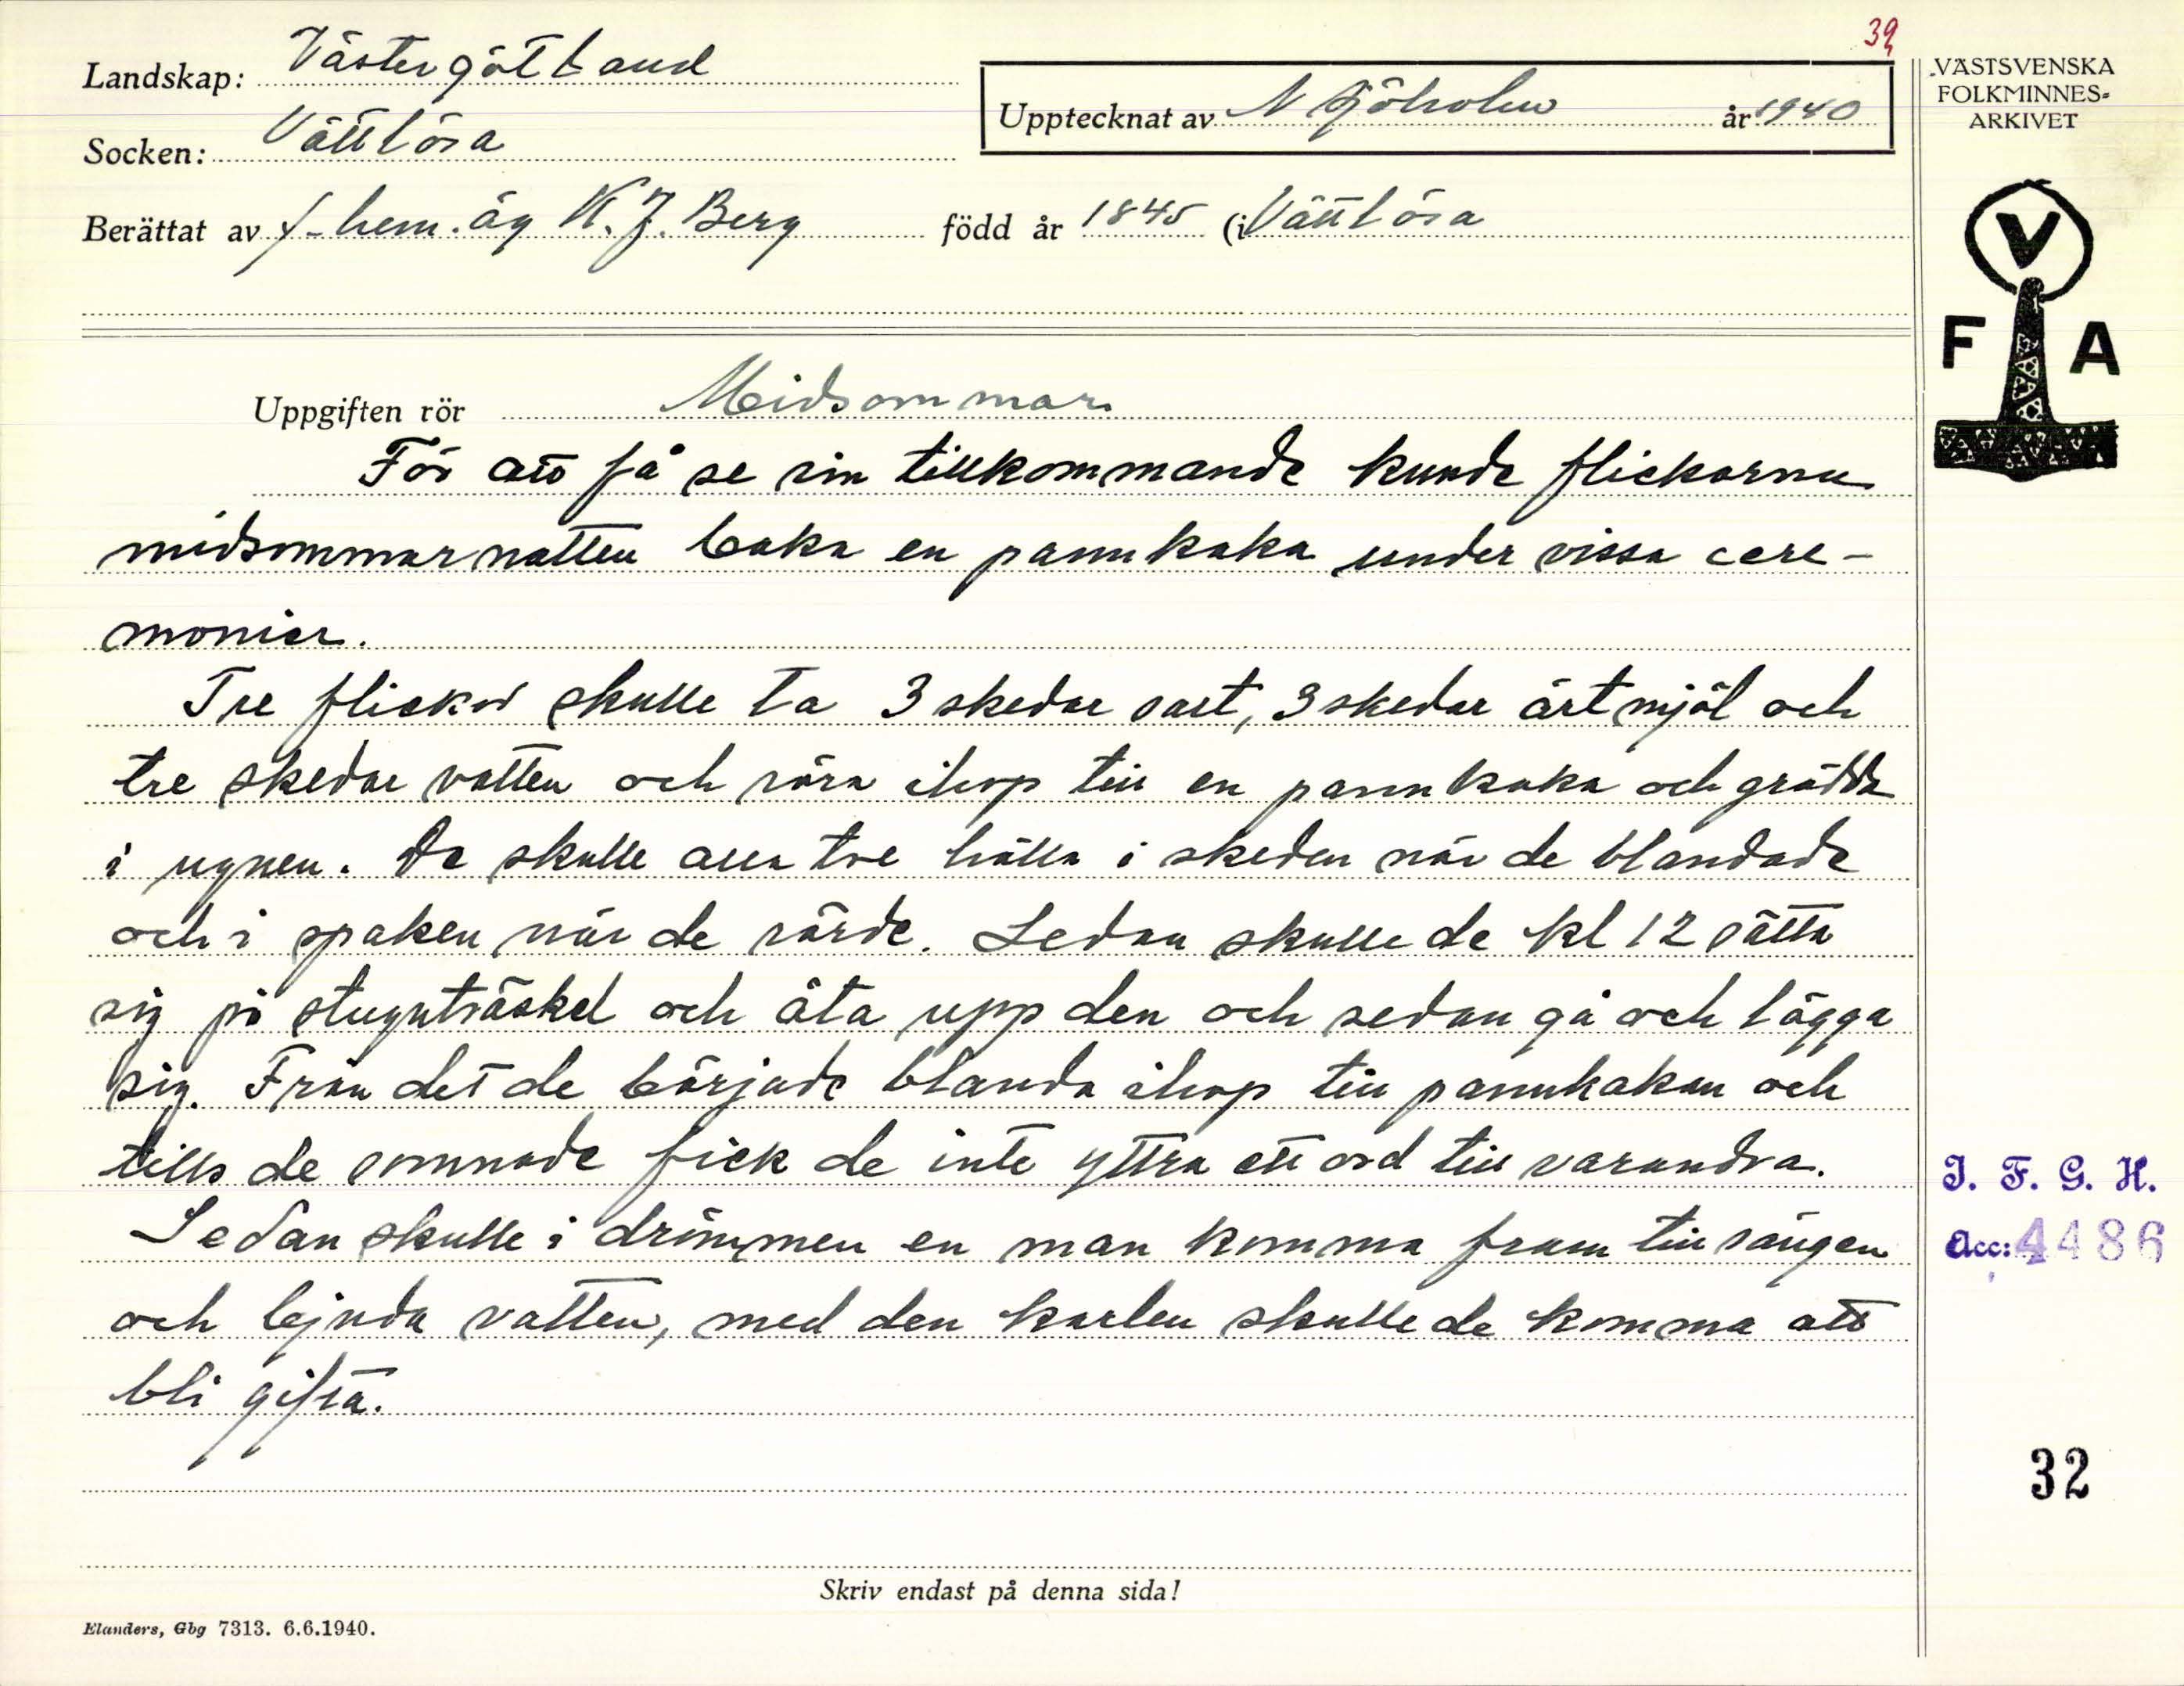 39
Landskap: Västergötland
Socken: Vättlösa
Upptecknat av N Sjöholm år 1940
Berättat av f. hem. äg K. J. Berg född år 1845 (i Vättlösa
VÄSTSVENSKA
FOLKMINNES-
ARKIVET
V
F A
Uppgiften rör Midsommar.
För att få se sin tillkommande kunde flickorna
midsommarnatten baka en pannkaka under vissa cere-
monier.
Tre flickor skulle ta 3 skedar salt, 3 skedar ärtmjöl och
tre skedar vatten och röra ihop till en pannkaka och grädda
i ugnen. De skulle alla tre hålla i skeden när de blandade
och i spaken när de rörde. Sedan skulle de kl 12 sätta
sig på stugutröskel och äta upp den och sedan gå och lägga
sig. Från det de började blanda ihop till pannkakan och
tills de somnade fick de inte yttra ett ord till varandra.
Sedan skulle i drömmen en man komma fram till sängen
och bjuda vatten, med den karlen skulle de komma att
bli gifta.
I. F. G. H.
Acc: 4486
32
Skriv endast på denna sida!
Elanders, Gbg 7313. 6.6.1940.